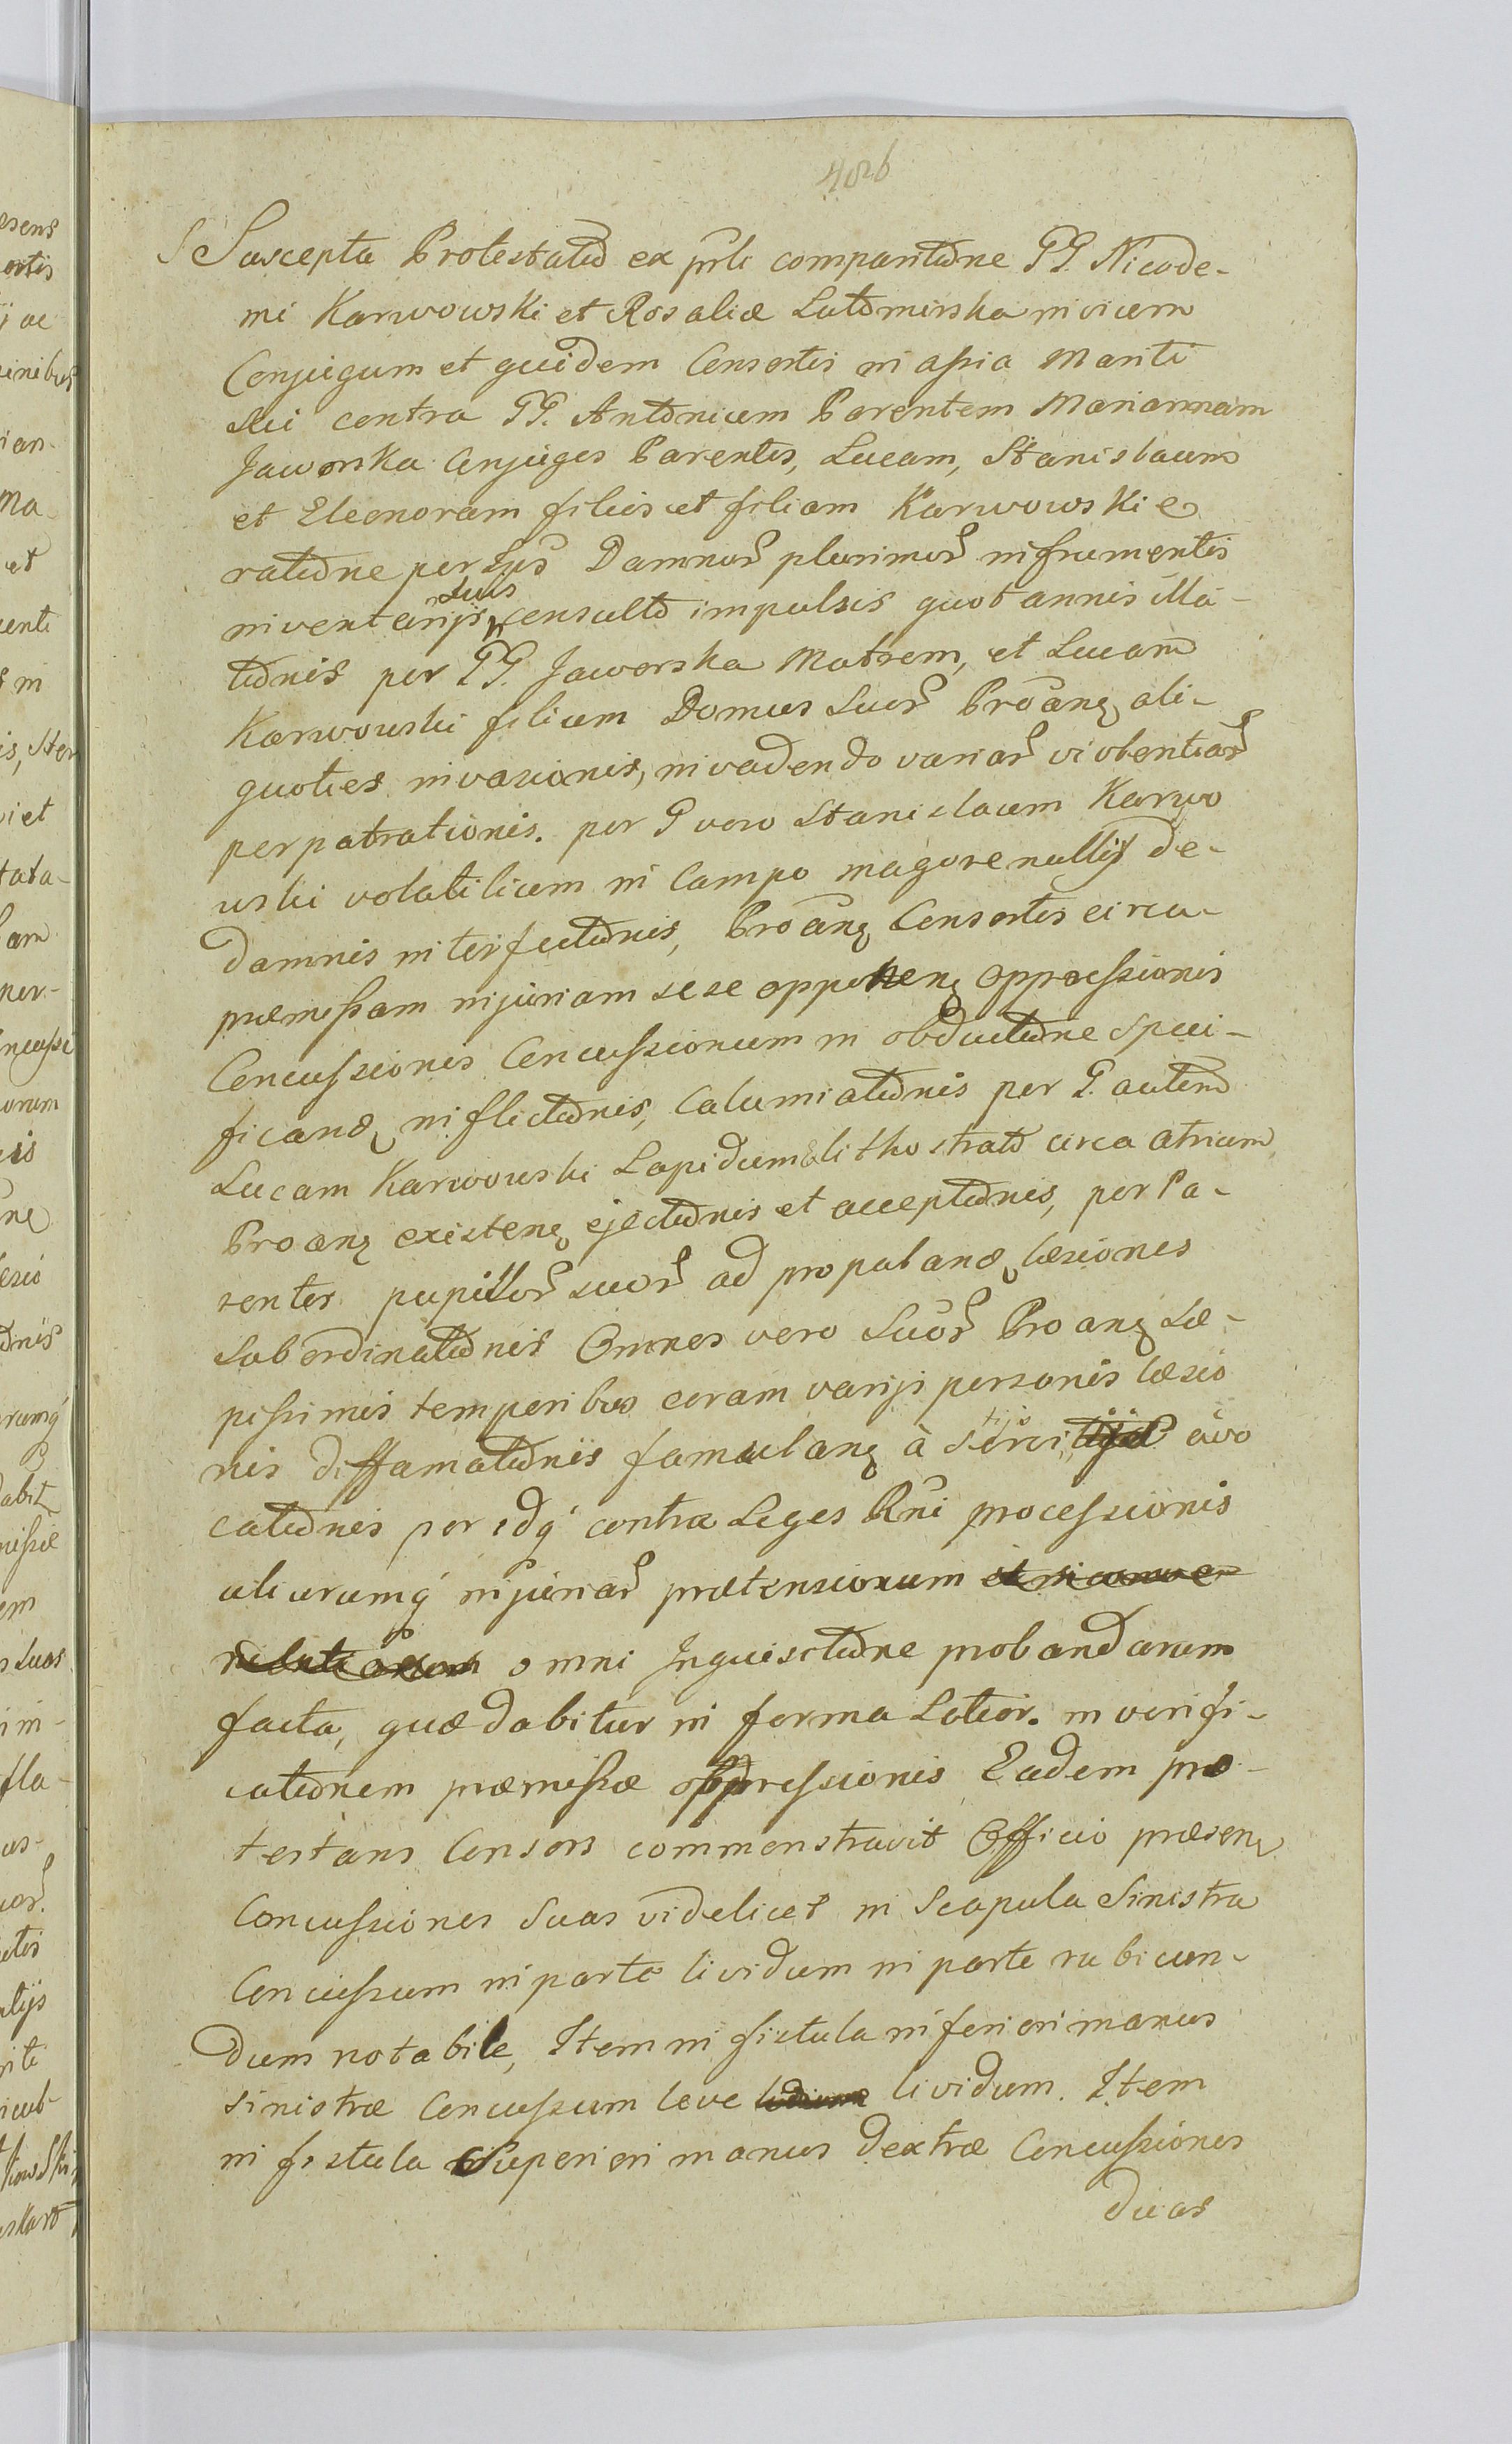 426
S Suscepta Protestatio ex prli comparitione GG. Nicode-
mi Karwowski et Rosaliæ Lutomirska invicem
Conjugum et quidem Consortis in assia Mariti
sui contra GG. Antonium Parentem Mariannam
Jaworska Conjuges Parentes, Lucam, Stanislaum
et Eleonoram filios et filiam Karwowskie
ratione per Sus Damnor plurimor in frumentis
inventarijs suis consulto impulsis quotannis illa-
tionis per GG. Jaworska Matrem, et Lucam
Karwowski filium Domus Suor Proang ali-
quoties invasionis, invadendo variar violentiar
perpatrationis. per G vero Stanislaum Karwo
wski volatilium in Campo magore nullis de-
Damnis interfectionis, Proang Consortis circa
præmissam injuriam sese opponeng oppressionis
Concussiones Concussionum in obductione speci-
ficand, inflictionis, Calumiationis per G. autem
Lucam Karwowski Lapidum lithostrato circa atrium
Proang existeng ejectionis et acceptionis, per Pa-
rentes pupillor suor ad propaland læsiones
Subordinationis Omnes vero Suor Proang Sæ-
pissimis temporibus coram varijs personis læsio
nis diffamationis famulang à Servitijs avo
cationis per idq contra Leges Rni processionis
aliarumq injuriar prætensionum
omni Inquisitione probandarum
facta, quæ dabitur in forma Latior. in verifi-
cationem præmissæ oppressionis Eadem pro-
testans Consors commonstravit Officio præseng
Concussiones Suas videlicet in Scapula Sinistra
Concussum in parte lividum in parte rubicun-
dum notabile, Item in fistula inferiori manus
sinistræ Concussum leve lividum. Item
in fistula Superiori manus dextræ Concussiones
duas